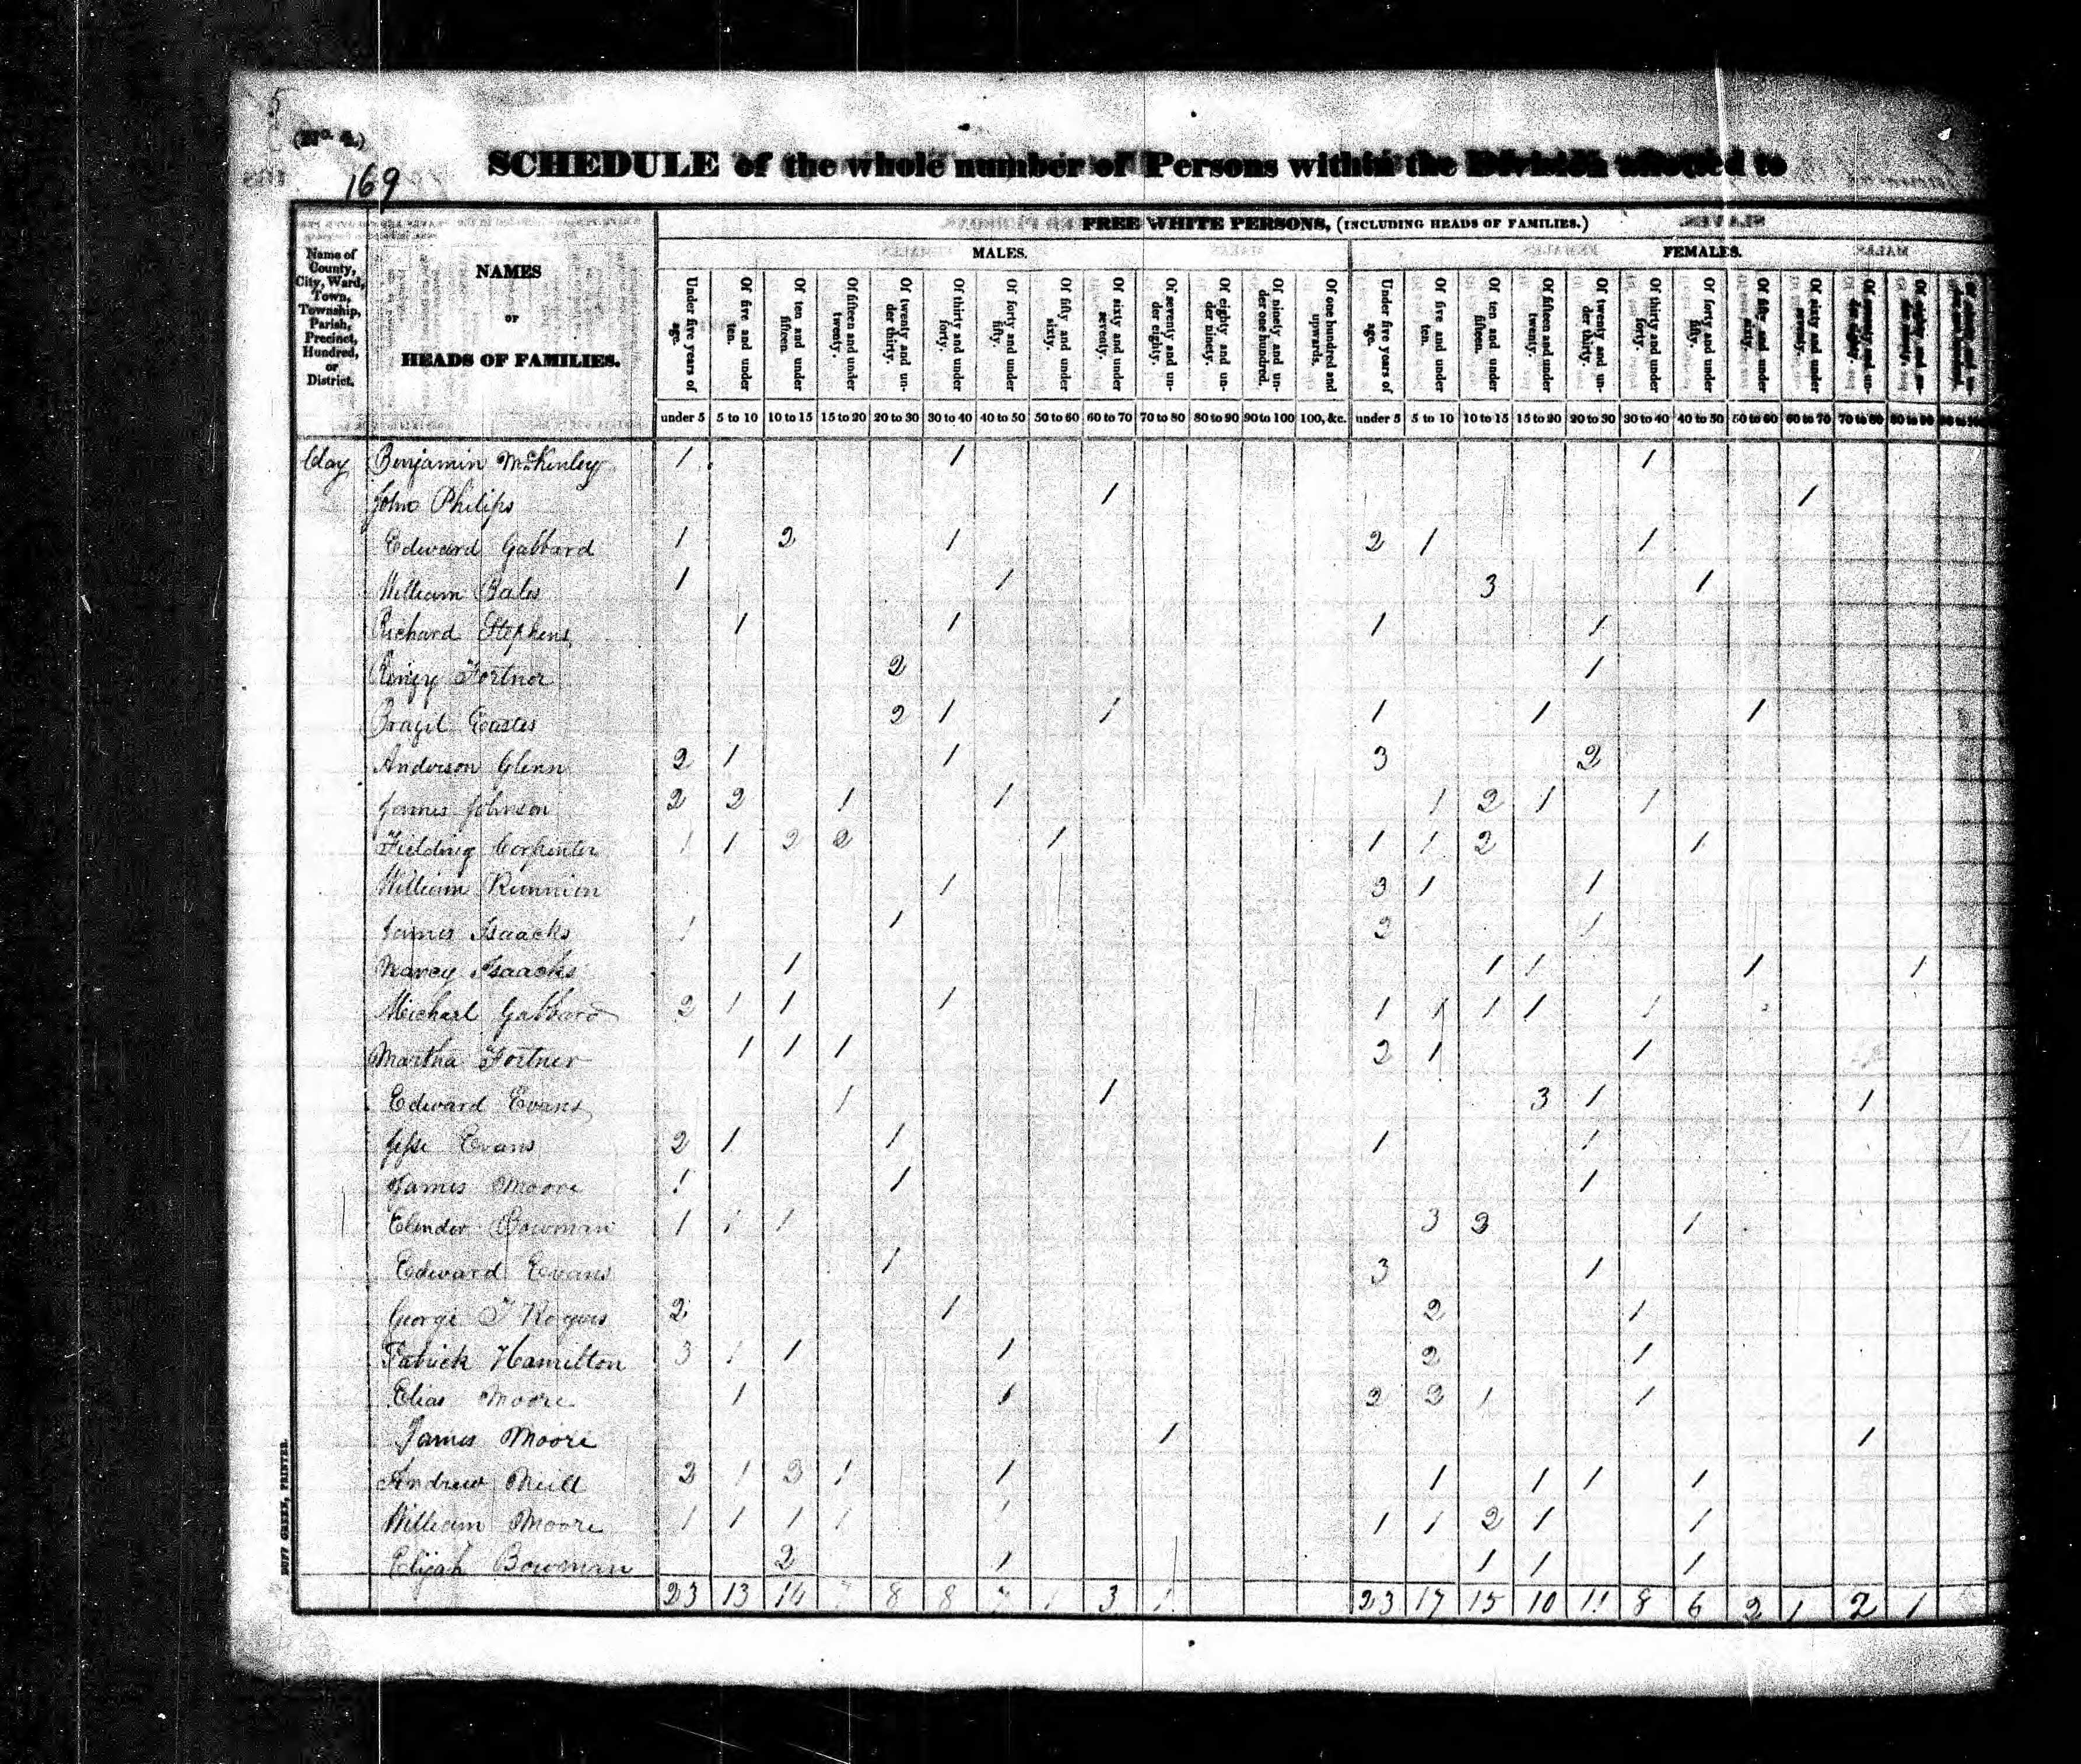 5
(No. 4.)
169
SCHEDULE of the whole number of Persons within the Division allotted to
FREE WHITE PERSONS, (INCLUDING HEADS OF FAMILIES.)
MALES. FEMALES.
Name of County, City, Ward, Town, Township, Parish, Precinct, Hundred, or District.
NAMES
OF
HEADS OF FAMILIES.
Under five years of age. Of five and under ten. Of ten and under fifteen. Of fifteen and under twenty. Of twenty and under thirty. Of thirty and under forty. Of forty and under fifty. Of fifty and under sixty. Of sixty and under seventy. Of seventy and under eighty. Of eighty and under ninety. Of ninety and under one hundred. Of one hundred and upwards. Under five years of age. Of five and under ten. Of ten and under fifteen. Of fifteen and under twenty. Of twenty and under thirty. Of thirty and under forty. Of forty and under fifty. Of fifty and under sixty. Of sixty and under seventy.
under 5 5 to 10 10 to 15 15 to 20 20 to 30 30 to 40 40 to 50 50 to 60 60 to 70 70 to 80 80 to 90 90 to 100 100, &c. under 5 5 to 10 10 to 15 15 to 20 20 to 30 30 to 40 40 to 50 50 to 60 60 to 70 70 to 80 80 to 90
Clay Benjamin McKinley 1 1 1
John Philips 1 1
Edward Gabbard 1 2 1 2 1 1
William Bales 1 1 3 1
Richard Stephens 1 1 1 1
Fortner 2 1
Brazil Eastes 2 1 1 1 1 1
Anderson Glenn 2 1 1 3 2
James Johnson 2 2 1 1 1 2 1 1
Fielding Carpenter 1 1 2 2 1 1 1 2 1
William Runnion 1 3 1 1
James Isaacks 1 1 2 1
Nancy Isaacks 1 1 1 1 1
Michael Gabbard 2 1 1 1 1 1 1 1 1
Martha Fortner 1 1 1 2 1 1
Edward Evans 1 1 3 1 1
Jesse Evans 2 1 1 1 1
James Moore 1 1 1
Elender Bowman 1 1 1 3 2 1
Edward Evans 1 3 1
George T Rogers 2 1 2 1
Patrick Hamilton 3 1 1 1 2 1
Elias Moore 1 1 2 2 1 1
James Moore 1 1
Andrew Neill 2 1 2 1 1 1 1 1 1
William Moore 1 1 1 1 1 1 1 2 1 1
Elijah Bowman 2 1 1 1 1
23 13 14 7 8 8 7 1 3 1 23 17 15 10 11 8 6 2 1 2 1
DUFF GREEN, PRINTER.